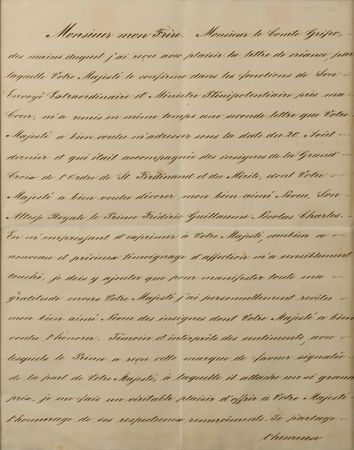 Monsieur mon Frère. Monsieur le Comte Grifeo,
des mains duquel j'ai reçu avec plaisir la lettre de créance, par
laquelle Votre Majesté le confirme dans les fonctions de Son
Envoyé Extraordinaire et Ministre Plénipotentiaire près ma
Cour, m'a remis en même temps une seconde lettre que Votre
Majesté a bien voulu m'adresser sous la date du 26 Août
dernier et qui était accompagnée des insignes de la Grand'
Croix de l'Ordre de St. Ferdinand et du Mérite, dont Votre
Majesté a bien voulu décorer mon bien aimé Neveu, Son
Altesse Royale le Prince Frédéric Guillaume Nicolas Charles.
En m'empressant d'exprimer à Votre Majesté, combien ce
nouveau et précieux témoignage d'affection m'a sensiblement
touché, je dois y ajouter que pour manifester toute ma
gratitude envers Votre Majesté j'ai personnellement revêtu
mon bien aimé Neveu des insignes dont Votre Majesté a bien
voulu l'honorer. Témoin et interprète des sentiments, avec
lesquels le Prince a reçu cette marque de faveur signalée
de la part de Votre Majesté, à laquelle il attache un si grand
prix, je me fais un véritable plaisir d'offrir à Votre Majesté
l'hommage de ses respectueux remerciments. Je partage
l'heureuse